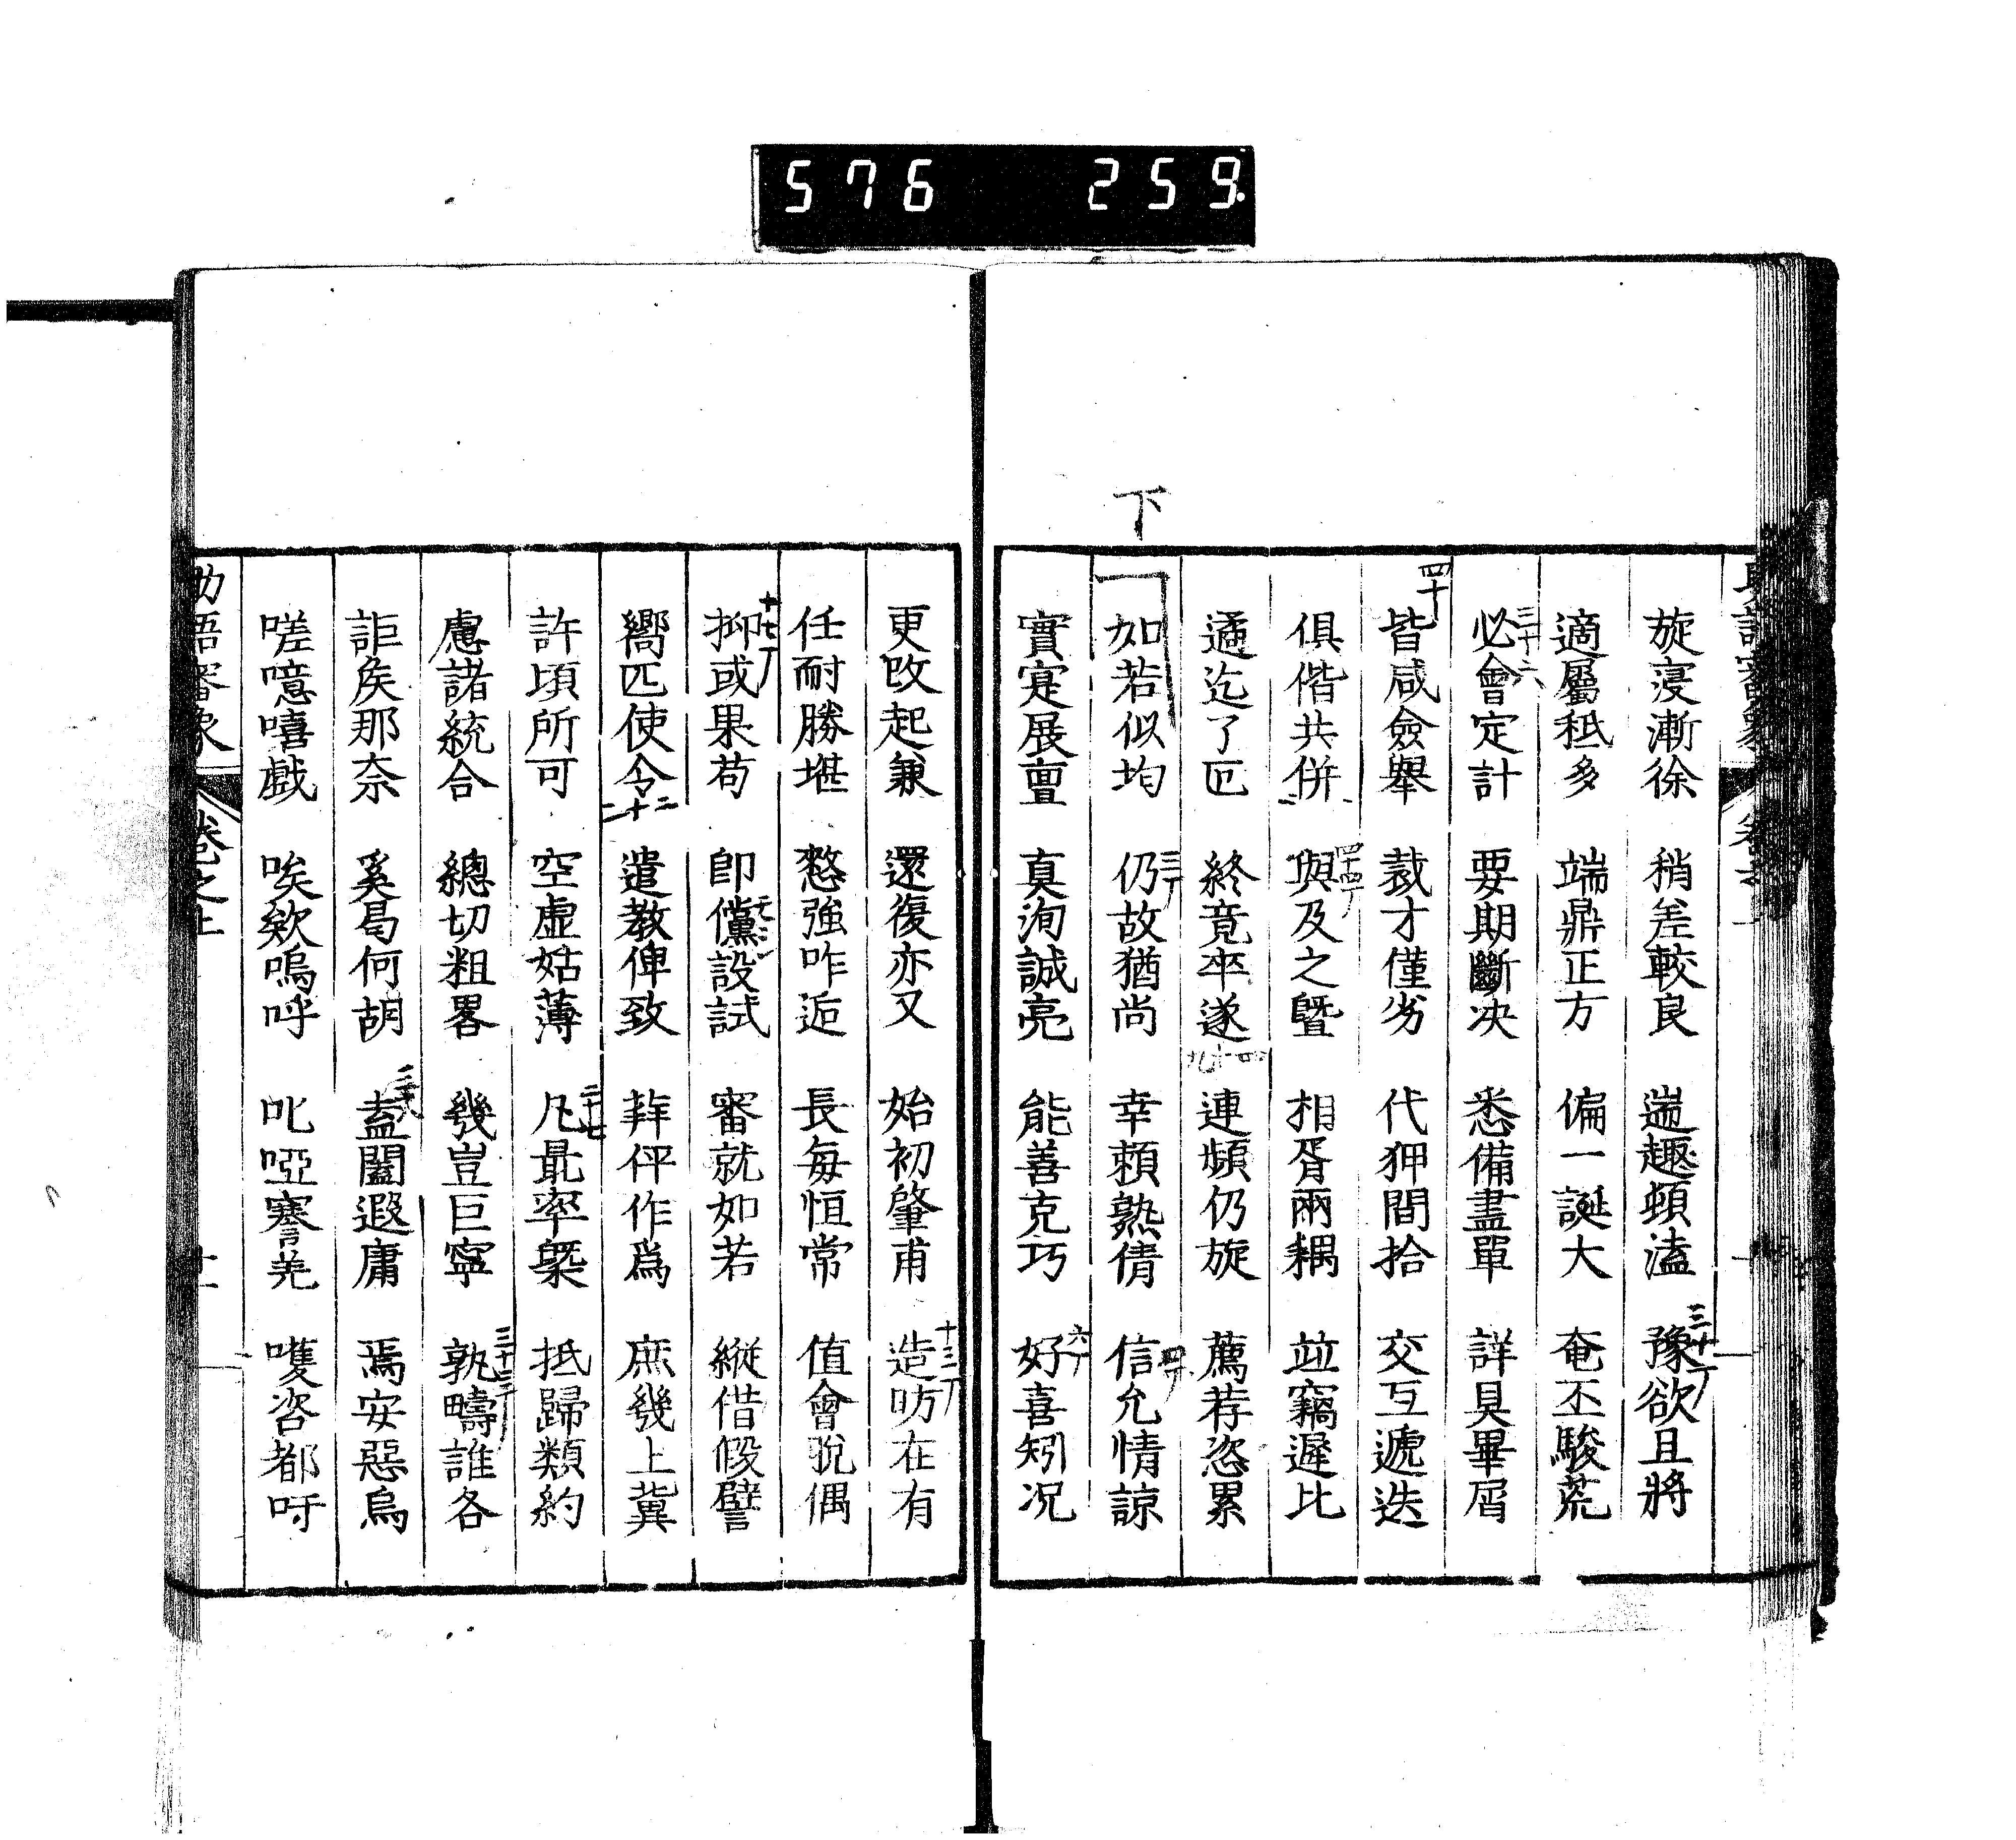 576 259
下
旋寖漸徐 稍差較良 遄趣頓溘 豫欲且將
適屬秪多 端鼎正方 偏一誕大 奄丕駿荒
必會定計 要期斷决 悉備盡單 詳具畢屑
皆咸僉舉 裁才僅劣 代狎間拾 交互遞迭
俱偕共併 與及之曁 相胥兩耦 竝竊遲比
遹迄了叵 終竟卒遂 連頻仍旋 薦荐恣累
如若似均 仍故猶尚 幸賴熟倩 信允情諒
實寔展亶 真洵誠亮 能善克巧 好喜矧况
更改起兼 還復亦又 始初肇甫 造昉在有
任耐勝堪 憗強咋逅 長每恒常 值會脫偶
抑或果苟 即儻設試 審就如若 縱借假譬
嚮匹使令 遣教俾致 拜伻作爲 庶幾上冀
許頃所可 空虛姑薄 凡最率槩 抵歸類約
慮諸統合 總切粗畧 幾豈巨寧 孰疇誰各
詎矣那奈 奚曷何胡 盍闔遐庸 焉安惡烏
嗟噫嘻戲 唉欸嗚呼 叱啞謇羌 嚄咨都吁
助語審象 卷之上